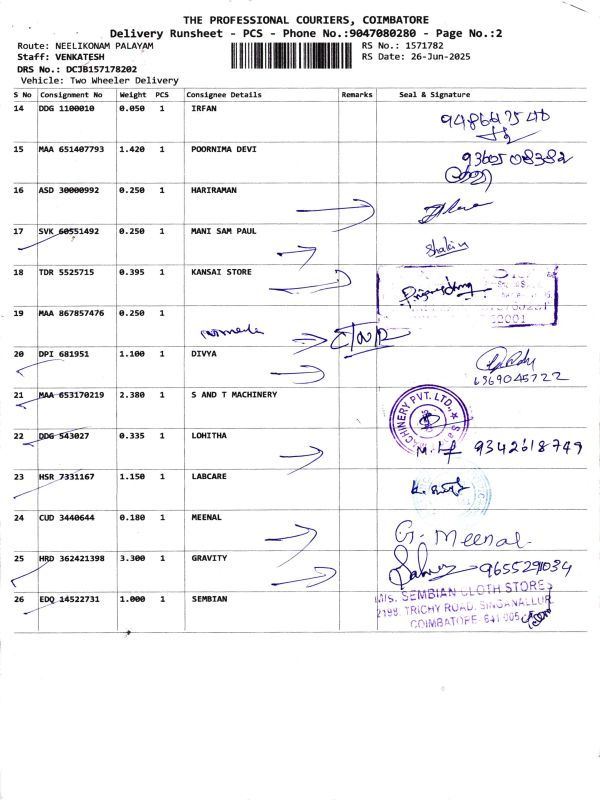 THE PROFESSIONAL COURIERS, COIMBATORE
Delivery Runsheet - PCS - Phone No.:9047080280 - Page No.:2
Route: NEELIKONAM PALAYAM
RS No.: 1571782
Staff: VENKATESH
RS Date: 26-Jun-2025
DRS No.: DCJB157178202
Vehicle: Two Wheeler Delivery
S No Consignment No Weight PCS Consignee Details Remarks Seal & Signature
14 DDG 1100010 0.050 1 IRFAN
15 MAA 651407793 1.420 1 POORNIMA DEVI 9360508382
16 ASD 30000992 0.250 1 HARIRAMAN
17 SVK 60551492 0.250 1 MANI SAM PAUL Shakin
18 TDR 5525715 0.395 1 KANSAI STORE
19 MAA 867857476 0.250 1
20 DPI 681951 1.100 1 DIVYA
6369045722
21 MAA 653170219 2.380 1 S AND T MACHINERY
MACHINERY PVT. LTD.,
22 DDG 543027 0.335 1 LOHITHA 9342618749
23 HSR 7331167 1.150 1 LABCARE
24 CUD 3440644 0.180 1 MEENAL G. Meenal.
25 HRD 362421398 3.300 1 GRAVITY 9655291034
26 EDQ 14522731 1.000 1 SEMBIAN
M/s. SEMBIAN CLOTH STORES
2198, TRICHY ROAD, SINGANALLUR
COIMBATORE- 641 005